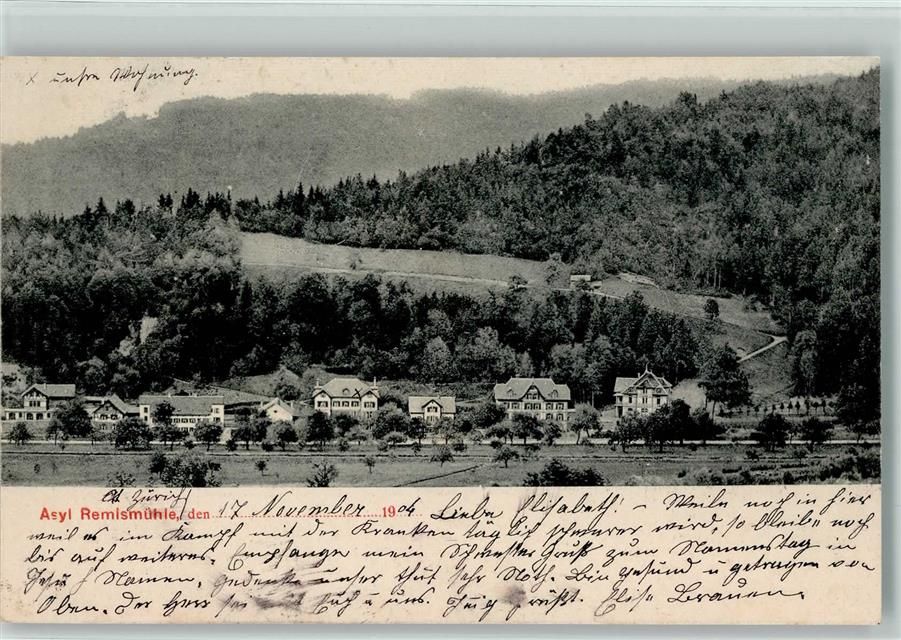 x unsre Wohnung.
Ct Zürich
Asyl Remismühle, den 17 November 1904 Liebe Elisabeth! - Weile noch in hier
weil es im Kampf mit der Kranken täglich schwerer wird, so bleibe noch
bis auf weiteres. Empfange mein Schwester Gruß zum Namenstag in
Jesu Namen. Gedenke unser thut sehr Noth. Bin gesund u getragen von
Oben. Der Herr sei mit Euch u uns. grüßt. Elise